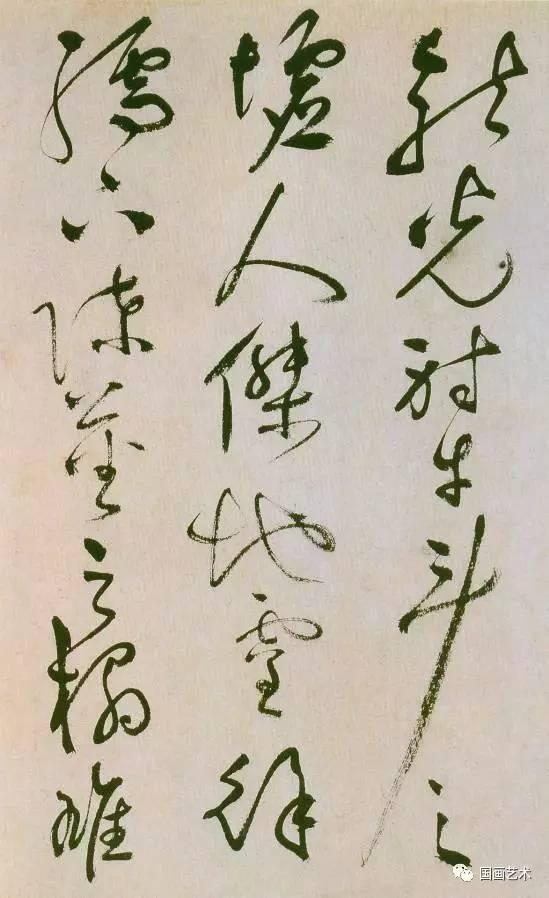 龍光射牛斗之
墟人傑地靈徐
孺下陳蕃之榻雄
国画艺术